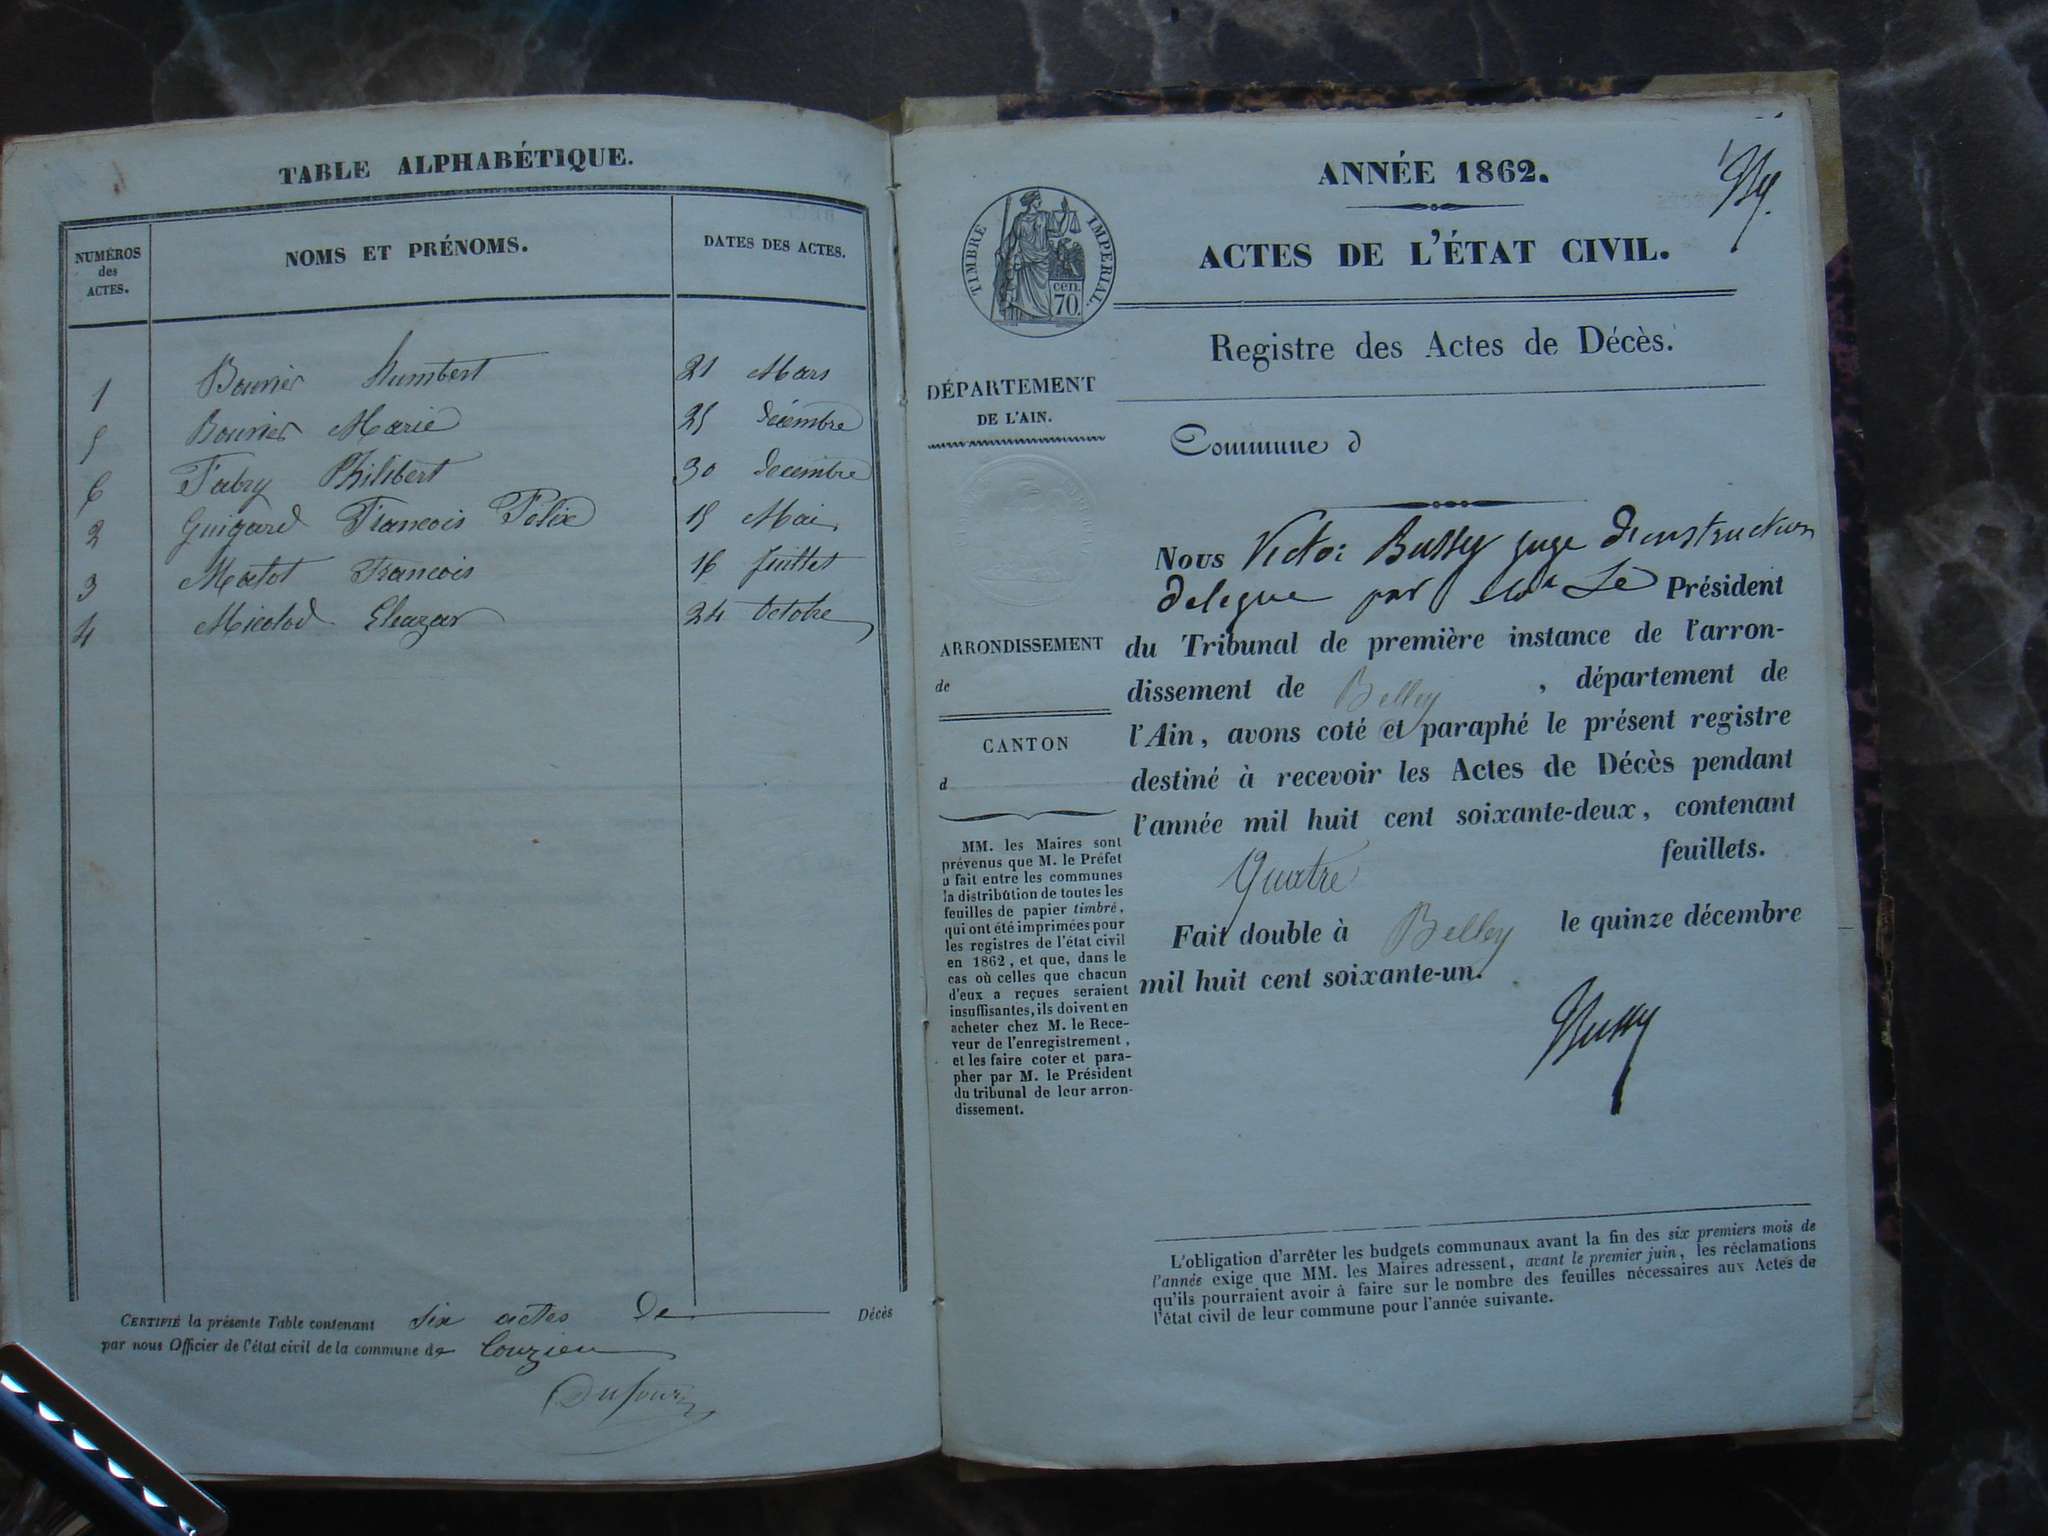 TABLE ALPHABÉTIQUE.
NUMÉROS
des
ACTES.
NOMS ET PRÉNOMS.
DATES DES ACTES.
1 Bouvier Humbert 21 Mars
5 Bouvier Marie 25 décembre
6 Fabry Philibert 30 decembre
2 Guigard Francois Felix 15 Mai
3 Matot Francois 16 Juillet
4 Micolod Eleazar 24 Octobre
CERTIFIÉ la présente Table contenant six actes de Décès
par nous Officier de l'état civil de la commune de Couzieu
Dufour
ANNÉE 1862.
ACTES DE L'ÉTAT CIVIL.
TIMBRE IMPERIAL.
cen.
70.
Registre des Actes de Décès.
DÉPARTEMENT
DE L'AIN.
Commune d
ARRONDISSEMENT
de
CANTON
d
MM. les Maires sont
prévenus que M. le Préfet
a fait entre les communes
la distribution de toutes les
feuilles de papier timbré,
qui ont été imprimées pour
les registres de l'état civil
en 1862, et que, dans le
cas où celles que chacun
d'eux a reçues seraient
insuffisantes, ils doivent en
acheter chez M. le Rece-
veur de l'enregistrement,
et les faire coter et para-
pher par M. le Président
du tribunal de leur arron-
dissement.
Nous Victor Bussy juge dinstruction
delegue par Mr Le Président
du Tribunal de première instance de l'arron-
dissement de Belley, département de
l'Ain, avons coté et paraphé le présent registre
destiné à recevoir les Actes de Décès pendant
l'année mil huit cent soixante-deux, contenant
Quatre feuillets.
Fait double à Belley le quinze décembre
mil huit cent soixante-un.
Bussy
L'obligation d'arrêter les budgets communaux avant la fin des six premiers mois de
l'année exige que MM. les Maires adressent, avant le premier juin, les réclamations
qu'ils pourraient avoir à faire sur le nombre des feuilles nécessaires aux Actes de
l'état civil de leur commune pour l'année suivante.